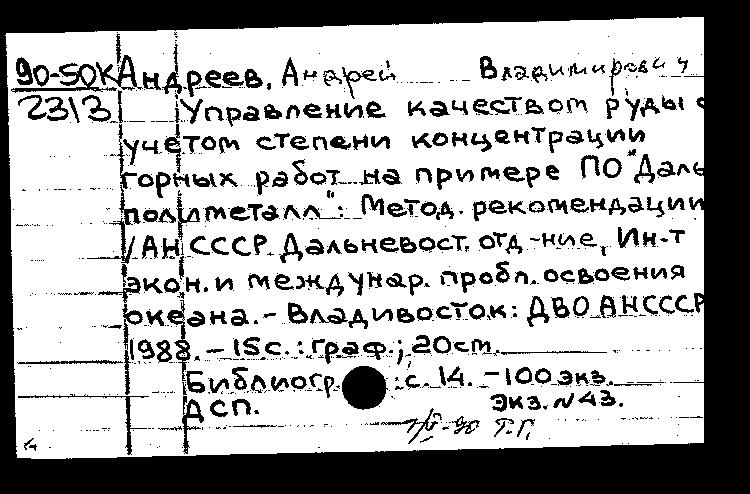 90-50К Андреев, Андрей Владимирович
2313 Управление качеством руды с
учетом степени концентрации
горных работ на примере ПО "Даль
полиметалл": Метод. рекомендации
/АН СССР. Дальневост. отд-ние, Ин-т
экон. и междунар. пробл. освоения
океана. - Владивосток: ДВО АН СССР
1988. - 15с.: граф.; 20см.
Библиогр.: с. 14. - 100 экз.
ДСП. Экз. N 43.